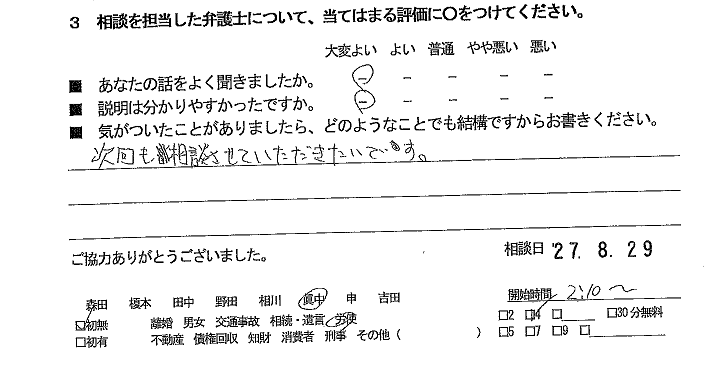 3 相談を担当した弁護士について、当てはまる評価に○をつけてください。
大変よい よい 普通 やや悪い 悪い
■ あなたの話をよく聞きましたか。 － － － － －
■ 説明は分かりやすかったですか。 － － － － －
■ 気がついたことがありましたら、どのようなことでも結構ですからお書きください。
次回も相談させていただきたいです。
ご協力ありがとうございました。 相談日 '27. 8. 29
森田 榎本 田中 野田 相川 眞中 申 吉田 開始時間 2:10～
☑初無 離婚 男女 交通事故 相続・遺言 労使 □2 □4 □ □30分無料
□初有 不動産 債権回収 知財 消費者 刑事 その他（ ） □5 □7 □9 □